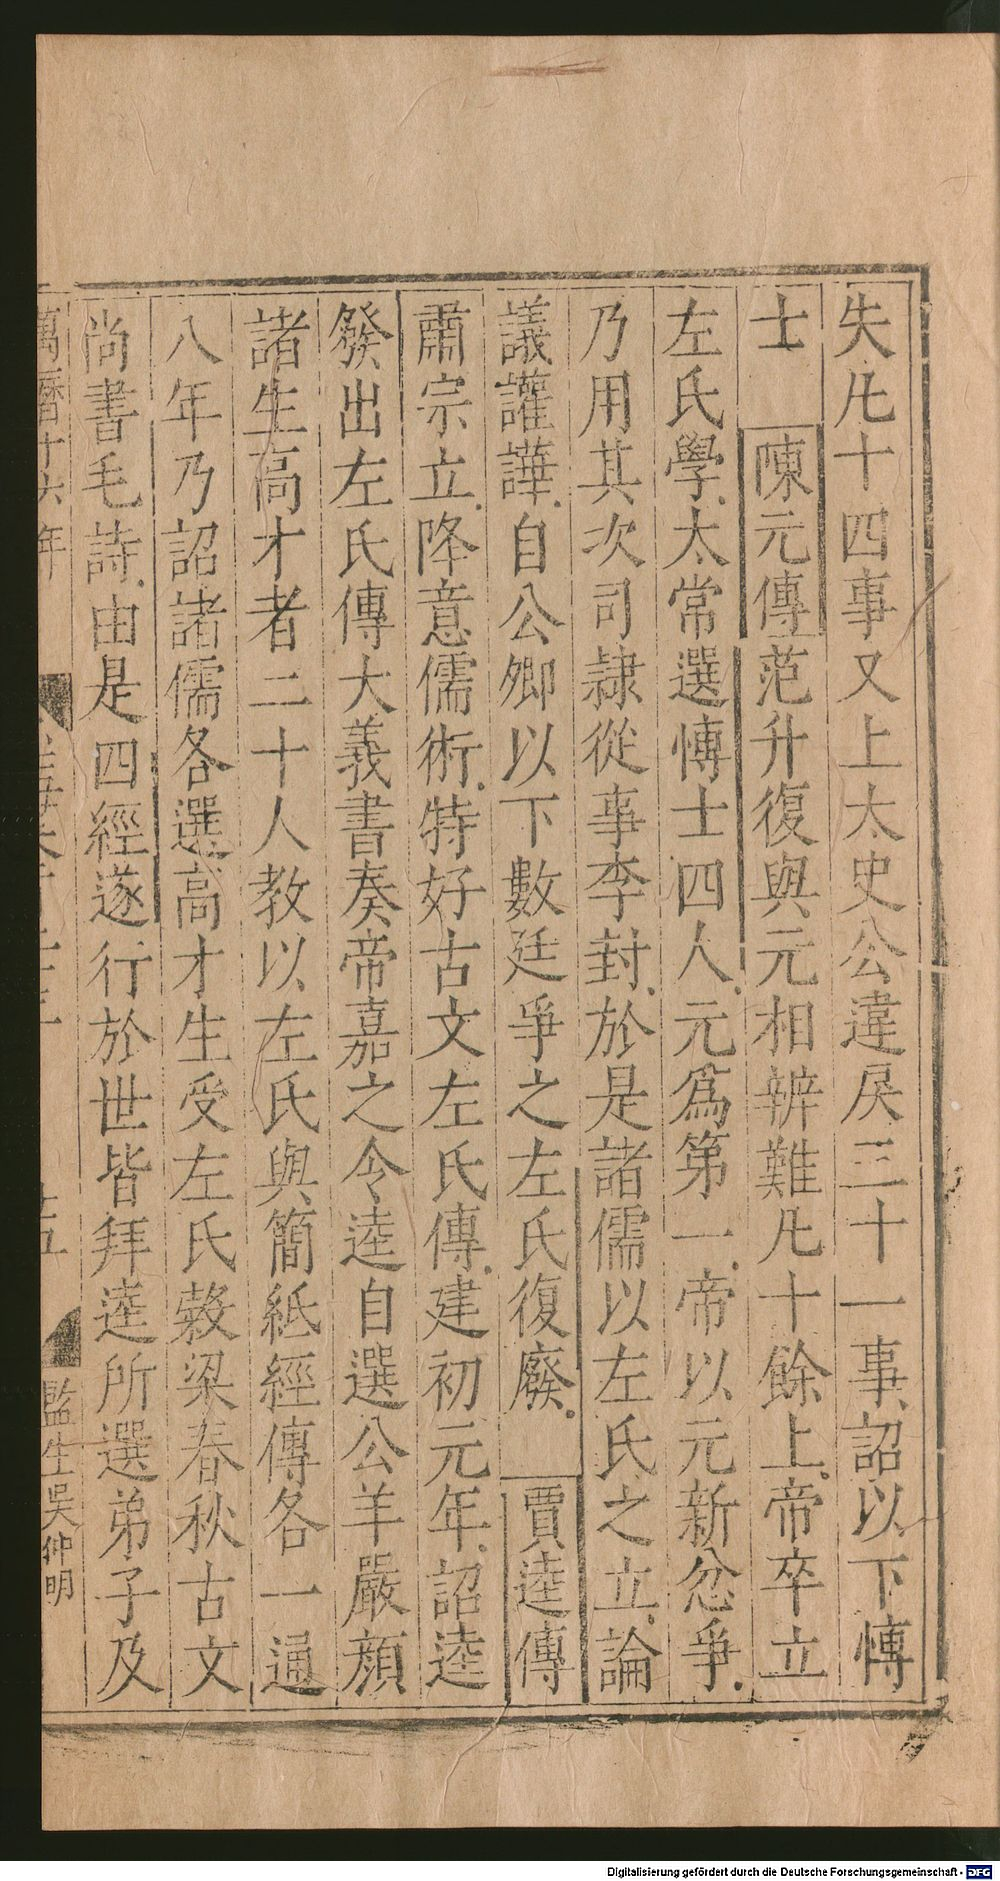 失凡十四事又上太史公違戾三十一事詔以下愽
士　陳元傳范升復與元相辨難凡十餘上帝卒立
左氏學太常選愽士四人元爲第一帝以元新忿爭
乃用其次司隷從事李封於是諸儒以左氏之立論
議讙譁自公卿以下數廷爭之左氏復廢　賈逵傳
肅宗立降意儒術特好古文左氏傳建初元年詔逵
發出左氏傳大義書奏帝嘉之令逵自選公羊嚴顔
諸生高才者二十人教以左氏與簡紙經傳各一通
八年乃詔諸儒各選高才生受左氏榖梁春秋古文
尚書毛詩由是四經遂行於世皆拜逵所選弟子及
萬曆十六年
監生吴仲明
Digitalisierung gefördert durch die Deutsche Forschungsgemeinschaft - DFG